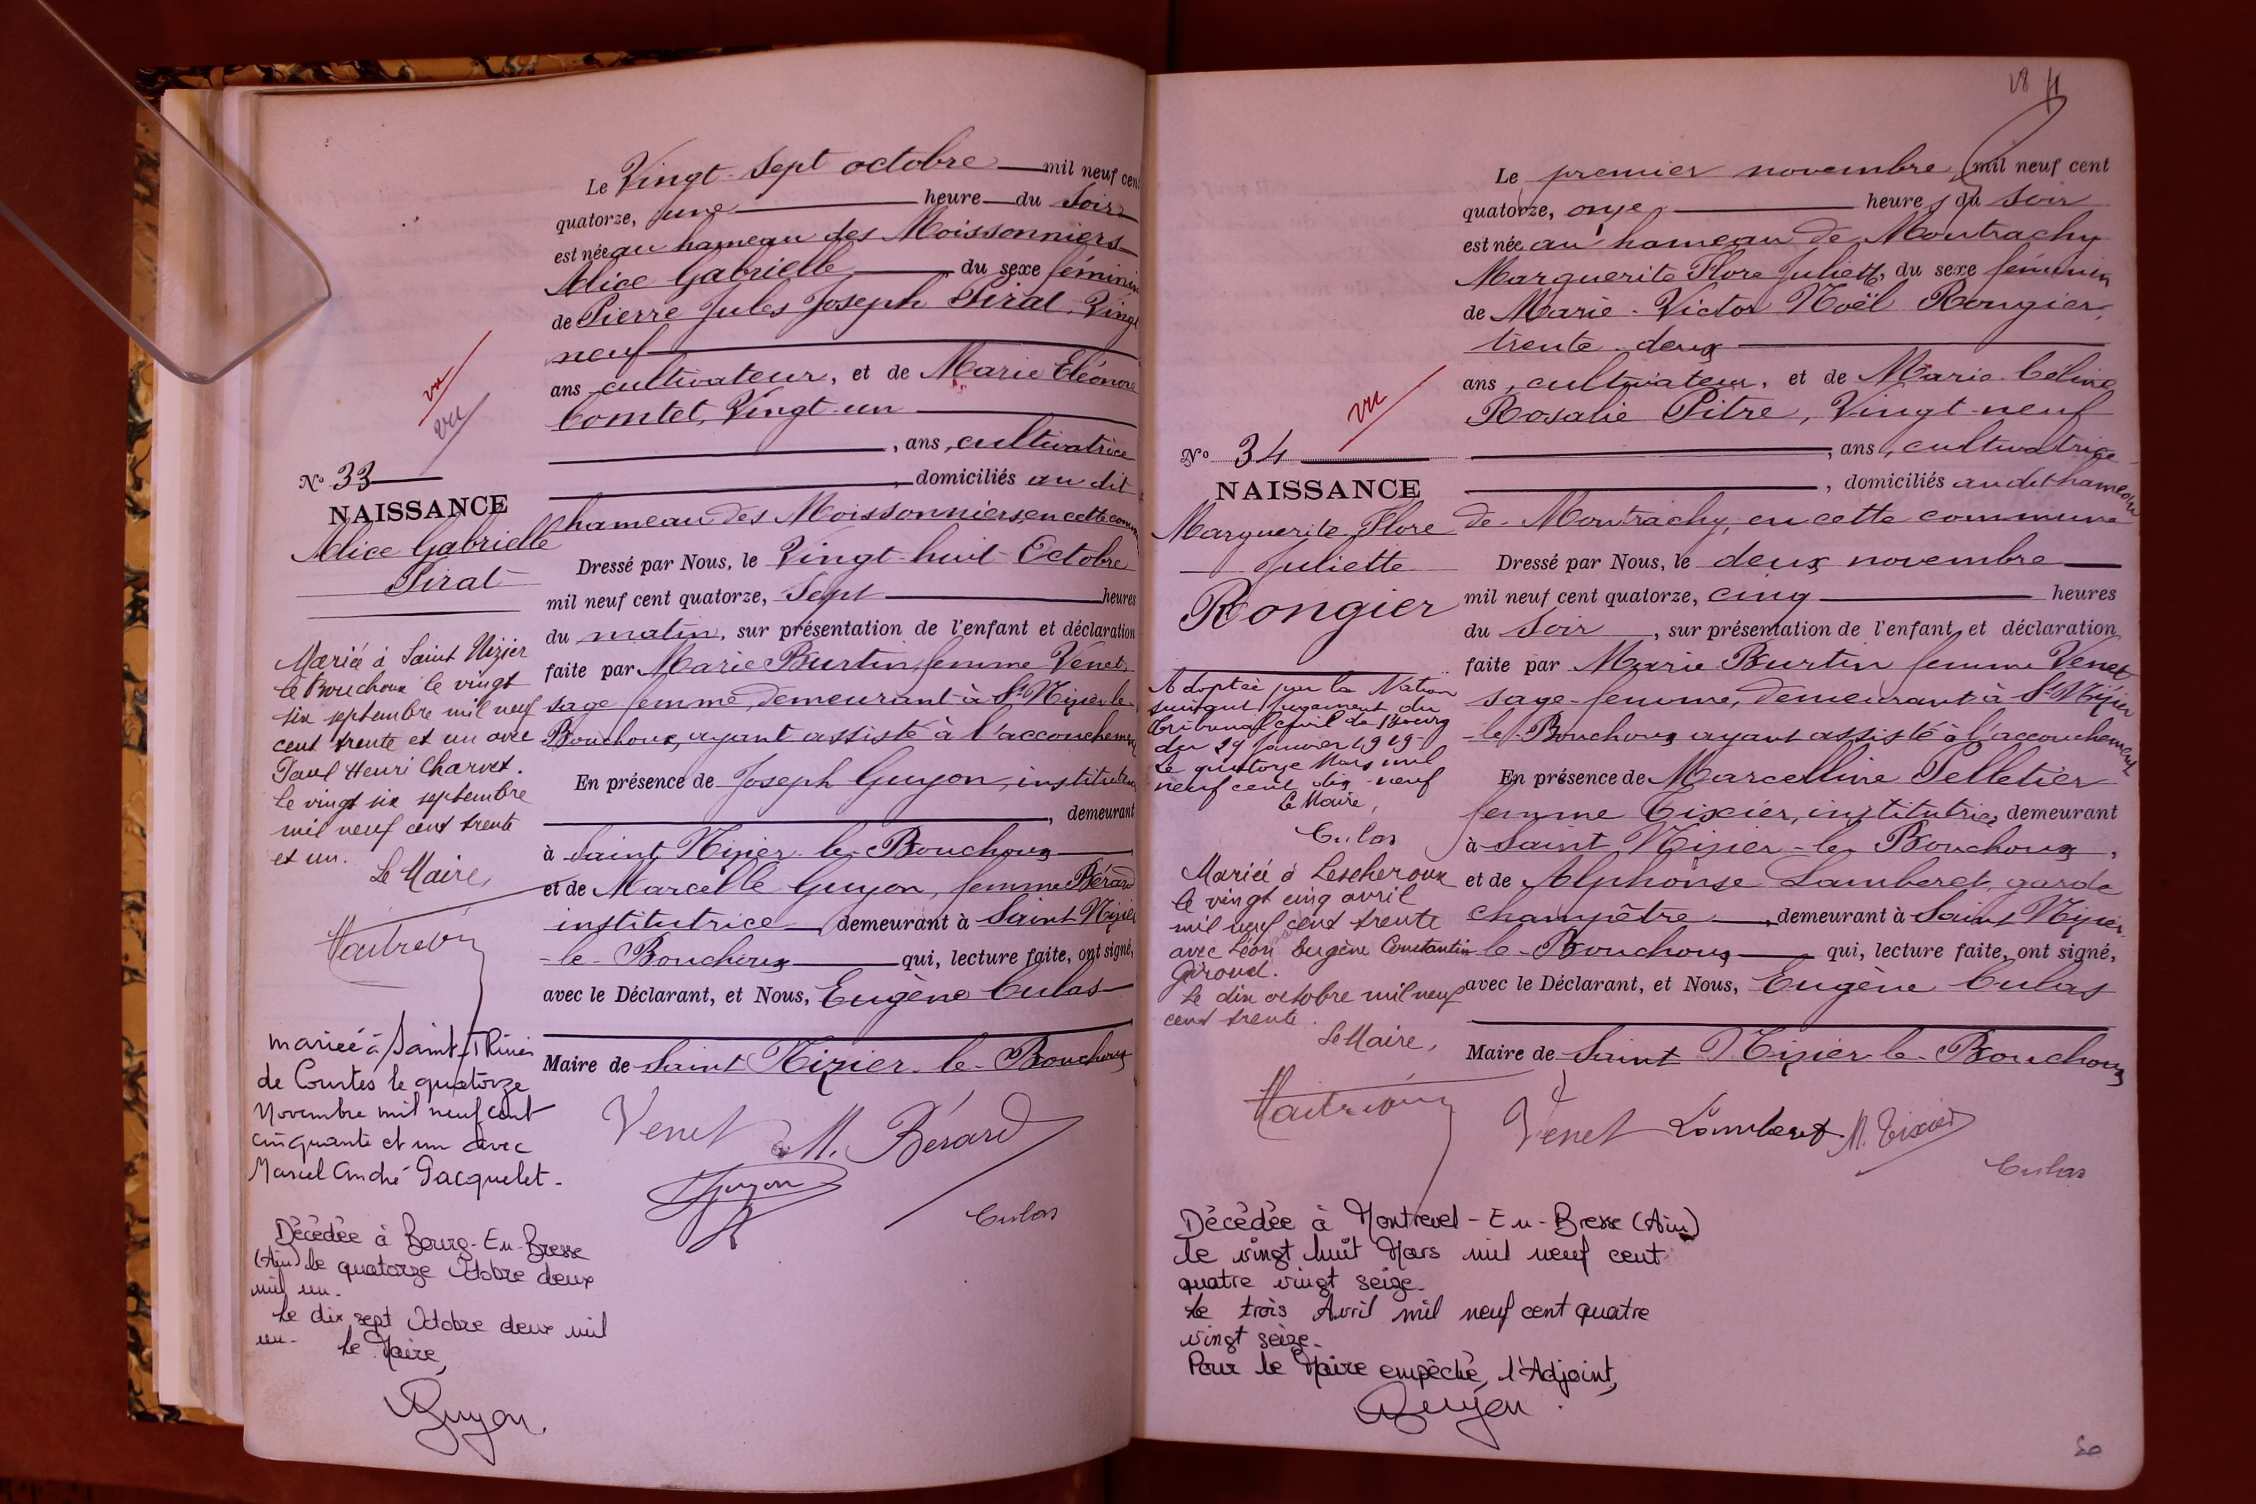 Le Vingt-Sept octobre mil neuf cent
quatorze, une heure du Soir
est née au hameau des Moissonniers
Alice Gabrielle du sexe féminin
de Pierre Jules Joseph Pirat, Vingt
neuf
ans cultivateur, et de Marie Eléonore
Comtet, Vingt-un
, ans, cultivatrice
, domiciliés au dit
hameau des Moissonniers, en cette comm
Dressé par Nous, le Vingt-huit Octobre
mil neuf cent quatorze, Sept heures
du matin, sur présentation de l'enfant et déclaration
faite par Marie Burtin, femme Venet,
sage femme, demeurant à St Nizier-le-
Bouchoux, ayant assisté à l'accouchement
En présence de Joseph Guyon, instituteur
, demeurant
à Saint Nizier-le-Bouchoux
et de Marcelle Guyon, femme Bérard
institutrice demeurant à Saint Nizier
-le-Bouchoux qui, lecture faite, ont signé,
avec le Déclarant, et Nous, Eugène Culas
Maire de Saint Nizier-le-Bouchoux
Venet M. Bérard
Guyon
Culas
vu
vu
No 33
NAISSANCE
Alice Gabrielle
Pirat
Mariée à Saint Nizier
le Bouchoux le vingt
six septembre mil neuf
cent trente et un avec
Paul Henri Charvet.
Le vingt six septembre
mil neuf cent trente
et un.
Le Maire,
mariée à Saint
de Courtes le quatorze
Novembre mil neuf cent
cinquante et un avec
Marcel André Pacquelet-
Décédée à Bourg-En-Bresse
(Ain) le quatorze Octobre deux
mil un-
Le dix sept Octobre deux mil
un- Le Maire,
Guyon
18 11
Le premier novembre, mil neuf cent
quatorze, onze heures du soir
est née au hameau de Montrachy
Marguerite Flore Juliette, du sexe féminin
de Marie-Victor Noël Rongier,
trente-deux
ans, cultivateur, et de Marie Céline
Rosalie Pitre, Vingt-neuf
, ans, cultivatrice
, domiciliés au dit hameau
de Montrachy, en cette commune
Dressé par Nous, le deux novembre
mil neuf cent quatorze, cinq heures
du soir, sur présentation de l'enfant et déclaration
faite par Marie Burtin femme Venet
sage-femme, demeurant à St Nizier
-le-Bouchoux ayant assisté à l'accouchement
En présence de Marcelline Pelletier
femme Tixier, institutrice demeurant
à Saint Nizier-le-Bouchoux,
et de Alphonse Lamberet, garde
champêtre, demeurant à Saint Nizier-
le-Bouchoux qui, lecture faite, ont signé,
avec le Déclarant, et Nous, Eugène Culas
Maire de Saint Nizier-le-Bouchoux
Venet Lamberet M. Tixier
Culas
vu
No 34
NAISSANCE
Marguerite Flore
Juliette
Rongier
Adoptée par la Nation
suivant jugement du
Tribunal civil de Bourg
du 24 janvier 1919-
Le quatorze Mars mil
neuf cent dix-neuf
Le Maire,
Culas
Mariée à Lescheroux
le vingt cinq avril
mil neuf cent trente
avec Léon Eugène Constantin
Giroud.
Le dix octobre mil neuf
cent trente.
Le Maire,
Décédée à Montrevel-En-Bresse (Ain)
le vingt huit Mars mil neuf cent
quatre vingt seize.
Le trois Avril mil neuf cent quatre
vingt seize.
Pour le Maire empêché, l'Adjoint,
Guyon